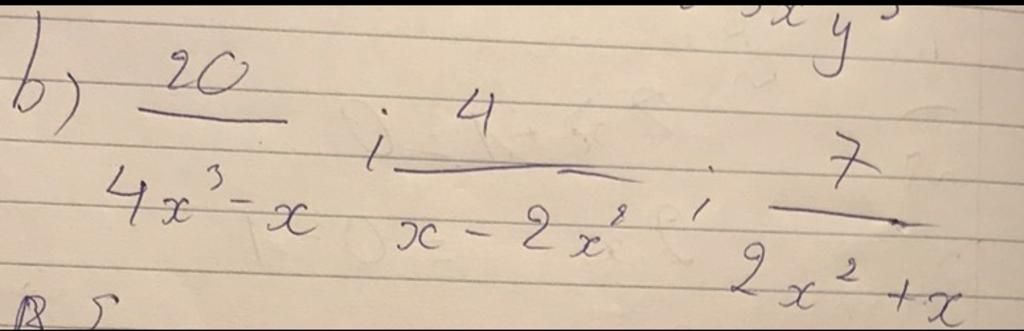 xy³
b) 20/(4x³ - x) ; 4/(x - 2x²) ; 7/(2x² + x)